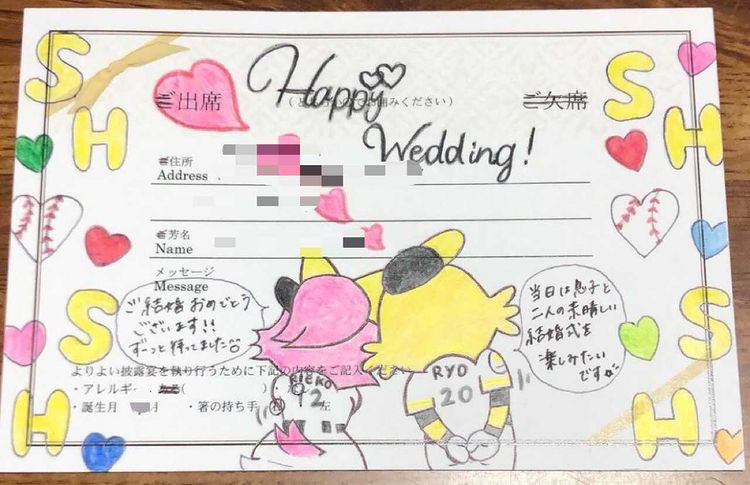 S
S
H
H
Happy
Wedding!
ご出席
ください）
ご欠席
ご住所
Address
ご芳名
Name
メッセージ
Message
ご結婚おめでとう
ございます!!
ずっと待ってました
当日は息子と
二人の素晴しい
結婚式を
楽しみたい
です
S
S
よりよい披露宴を執り行うために下記の内容をご記入ください
・アレルギー ある( )
・誕生月 月 ・箸の持ち手 右 左
RIEKO
12
RYO
20
H
H